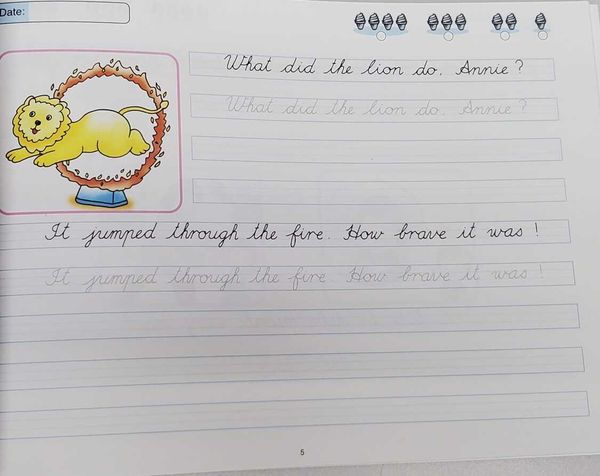 Date:
What did the lion do, Annie?
What did the lion do, Annie?
It jumped through the fire. How brave it was!
It jumped through the fire. How brave it was!
5